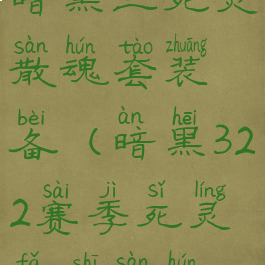 暗黑三死灵
sàn hún tào zhuāng
散魂套装
bèi àn hēi
备(暗黑32
sài jì sǐ líng
2赛季死灵
fǎ shī sàn hún